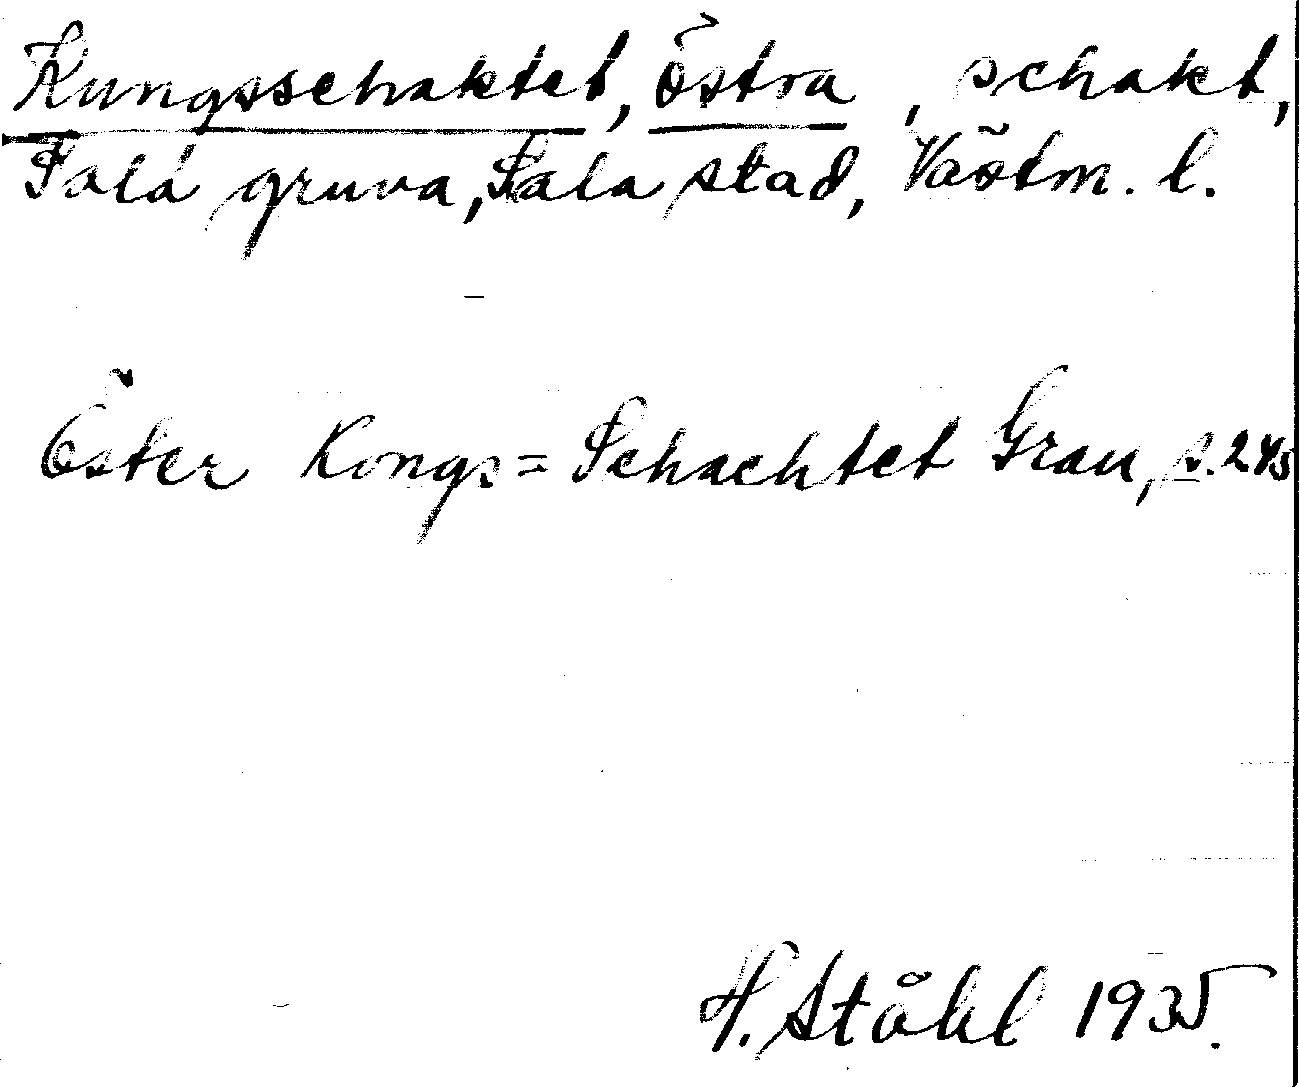 Kungsschaktet, Östra, schakt,
Sala gruva, Sala stad, Västm. l.
Öster Kongs=Schachtet Grau, s. 245
H. Ståhl 1935.